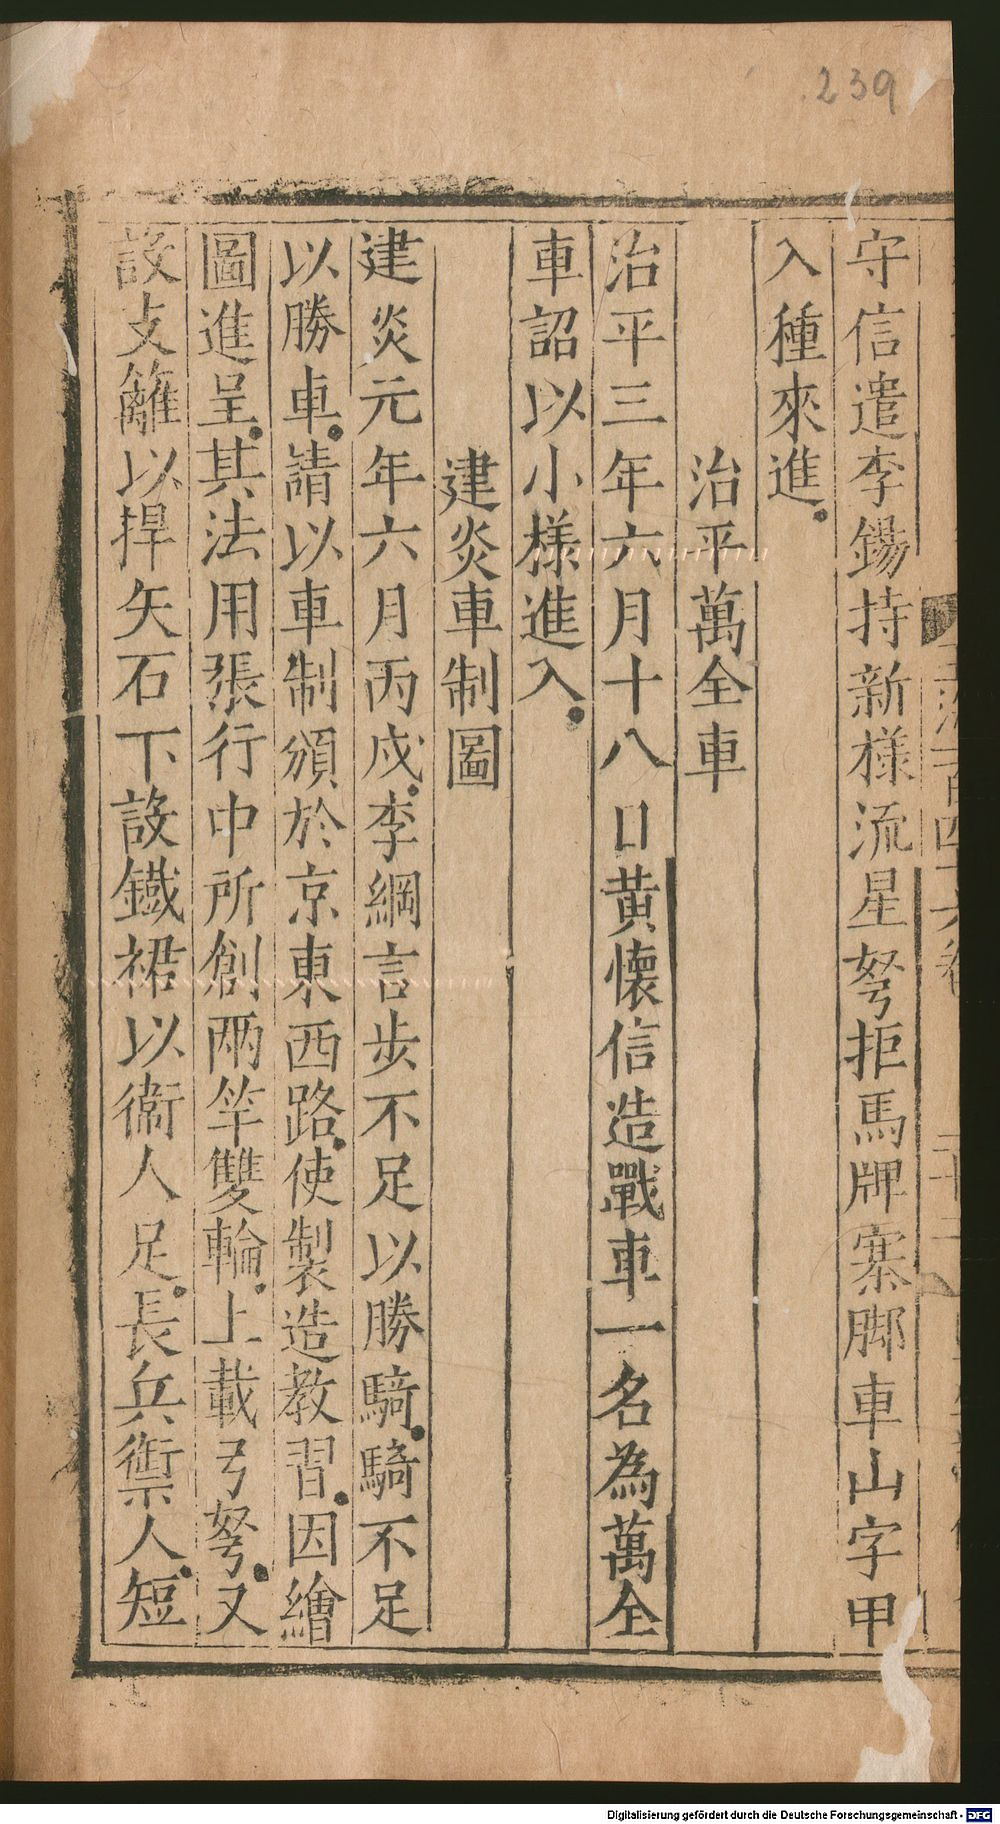 239
守信遣李鍚持新様流星弩拒馬牌寨脚車山字甲
入種來進
治平萬全車
治平三年六月十八日黄懷信造戰車一名為萬全
車詔以小様進入
建炎車制圖
建炎元年六月丙戌李綱言步不足以勝騎騎不足
以勝車請以車制頒於京東西路使製造教習因繪
圖進呈其法用張行中所創兩竿雙輪上載弓弩又
設支籬以捍矢石下設鐵裙以衞人足長兵禦人短
Digitalisierung gefördert durch die Deutsche Forschungsgemeinschaft - DFG